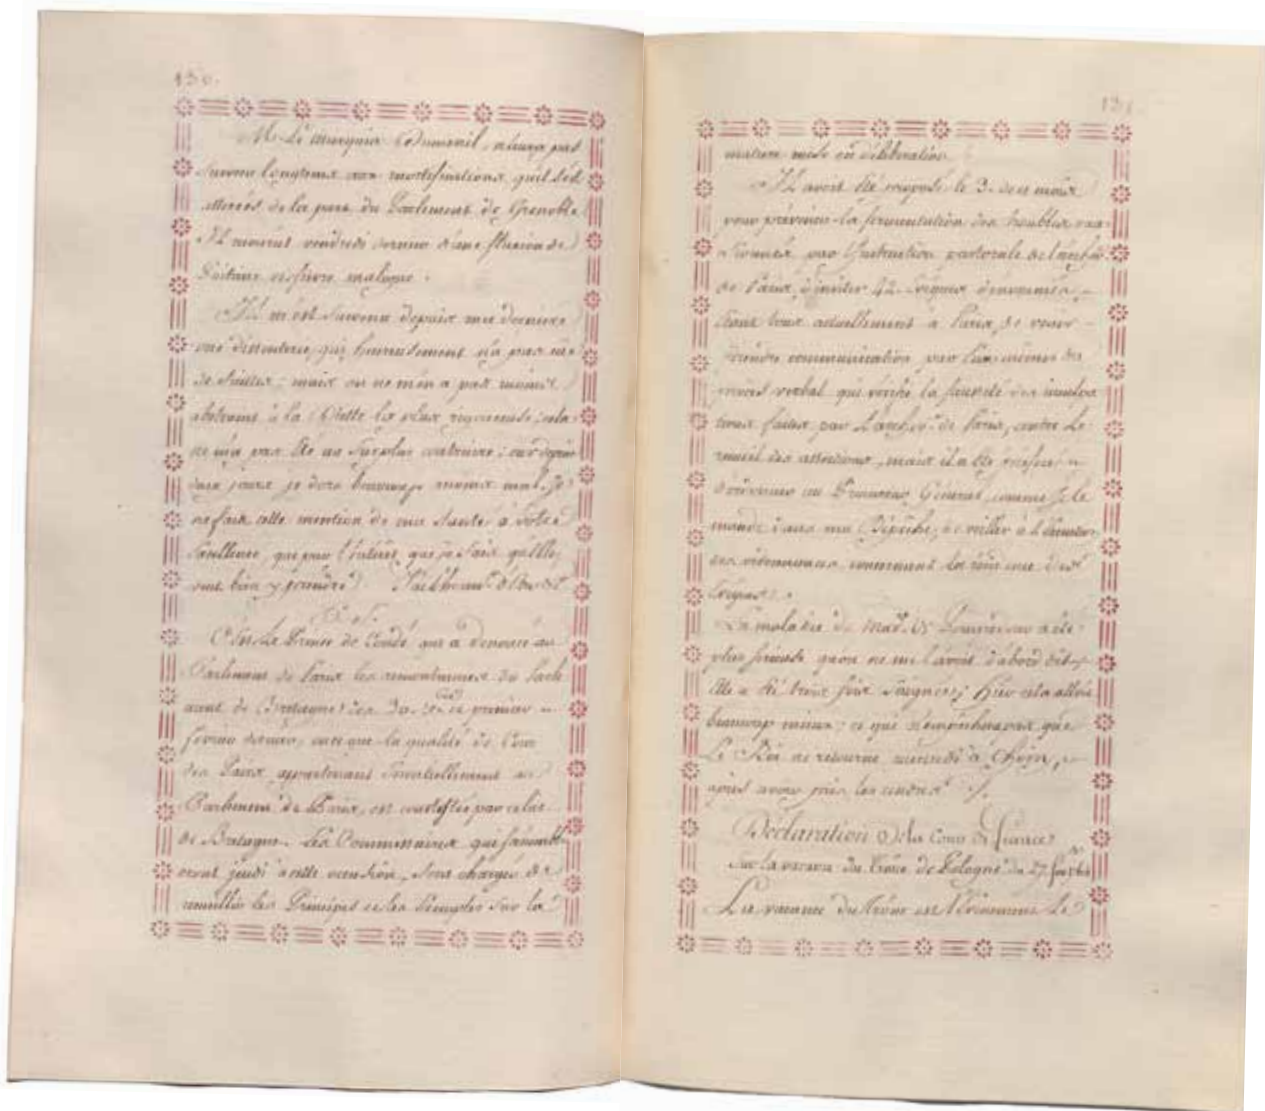 130.
M. Le Marquis Dumenil, n'aura pas
survecu longtems aux mortifications qu'il s'est
attirées de la part du Parlement de Grenoble
Il mourut vendredi dernier d'une fluxion de
Poitrine et fievre maligne.
Il m'est survenu depuis ma derniere
une dissenterie, qui heureusement n'a pas eu
de suites; mais on ne m'en a pas moins
abstraint à la Diette la plus rigoureuse; cela
ne m'a pas été au surplus contraire; car depuis
deux jours je dors beaucoup moins mal. Je
ne fais cette mention de ma santé à votre
Excellence, que pour l'interêt, que je sais qu'elle
veut bien y prendre.
P. S.
C'est Le Prince de Condé qui a denoncé au
Parlement de Paris les remontrances du Parle
ment de Bretagne des
fevrier dernier, parce que la qualité de Cour
des Pairs, appartenant essentiellement au
Parlement de Paris, est contestée par celui
de Bretagne. Les Commissaires qui s'assemble
ront jeudi à cette occasion, sont chargés de
recueillir les Principes et les Exemples sur la
131.
matiere mise en déliberation.
Il avoit été proposé le 3. de ce mois
pour prévenir la fermentation des troubles
par l'Instruction pastorale de l'archev.
de Paris, d'inviter 42. Evêques
tous actuellement à Paris, de venir
prendre communication par eux mêmes du
procès verbal qui verifie la fausseté des imputa
tions faites par L'archev. de Paris, contre Le
recueil des assertions, mais il a été préferé
au Procureur Général, comme je le
mande dans ma Dépêche, de veiller à l'Execution
des ordonnances, concernant la résidence des
Evêques.
La maladie de Mad. de Pompadour a été
plus serieuse qu'on ne me l'avoit d'abord dit,
Elle a été trois fois saignée; Hier cela alloit
beaucoup mieux; ce qui n'empêchera pas que
Le Roi ne retourne mercredi à Choisy,
après avoir pris les cendres ./.
Déclaration de la Cour de France
sur la vacance du Trône de Pologne du 27.
La vacance du Trône est l'évenement Le